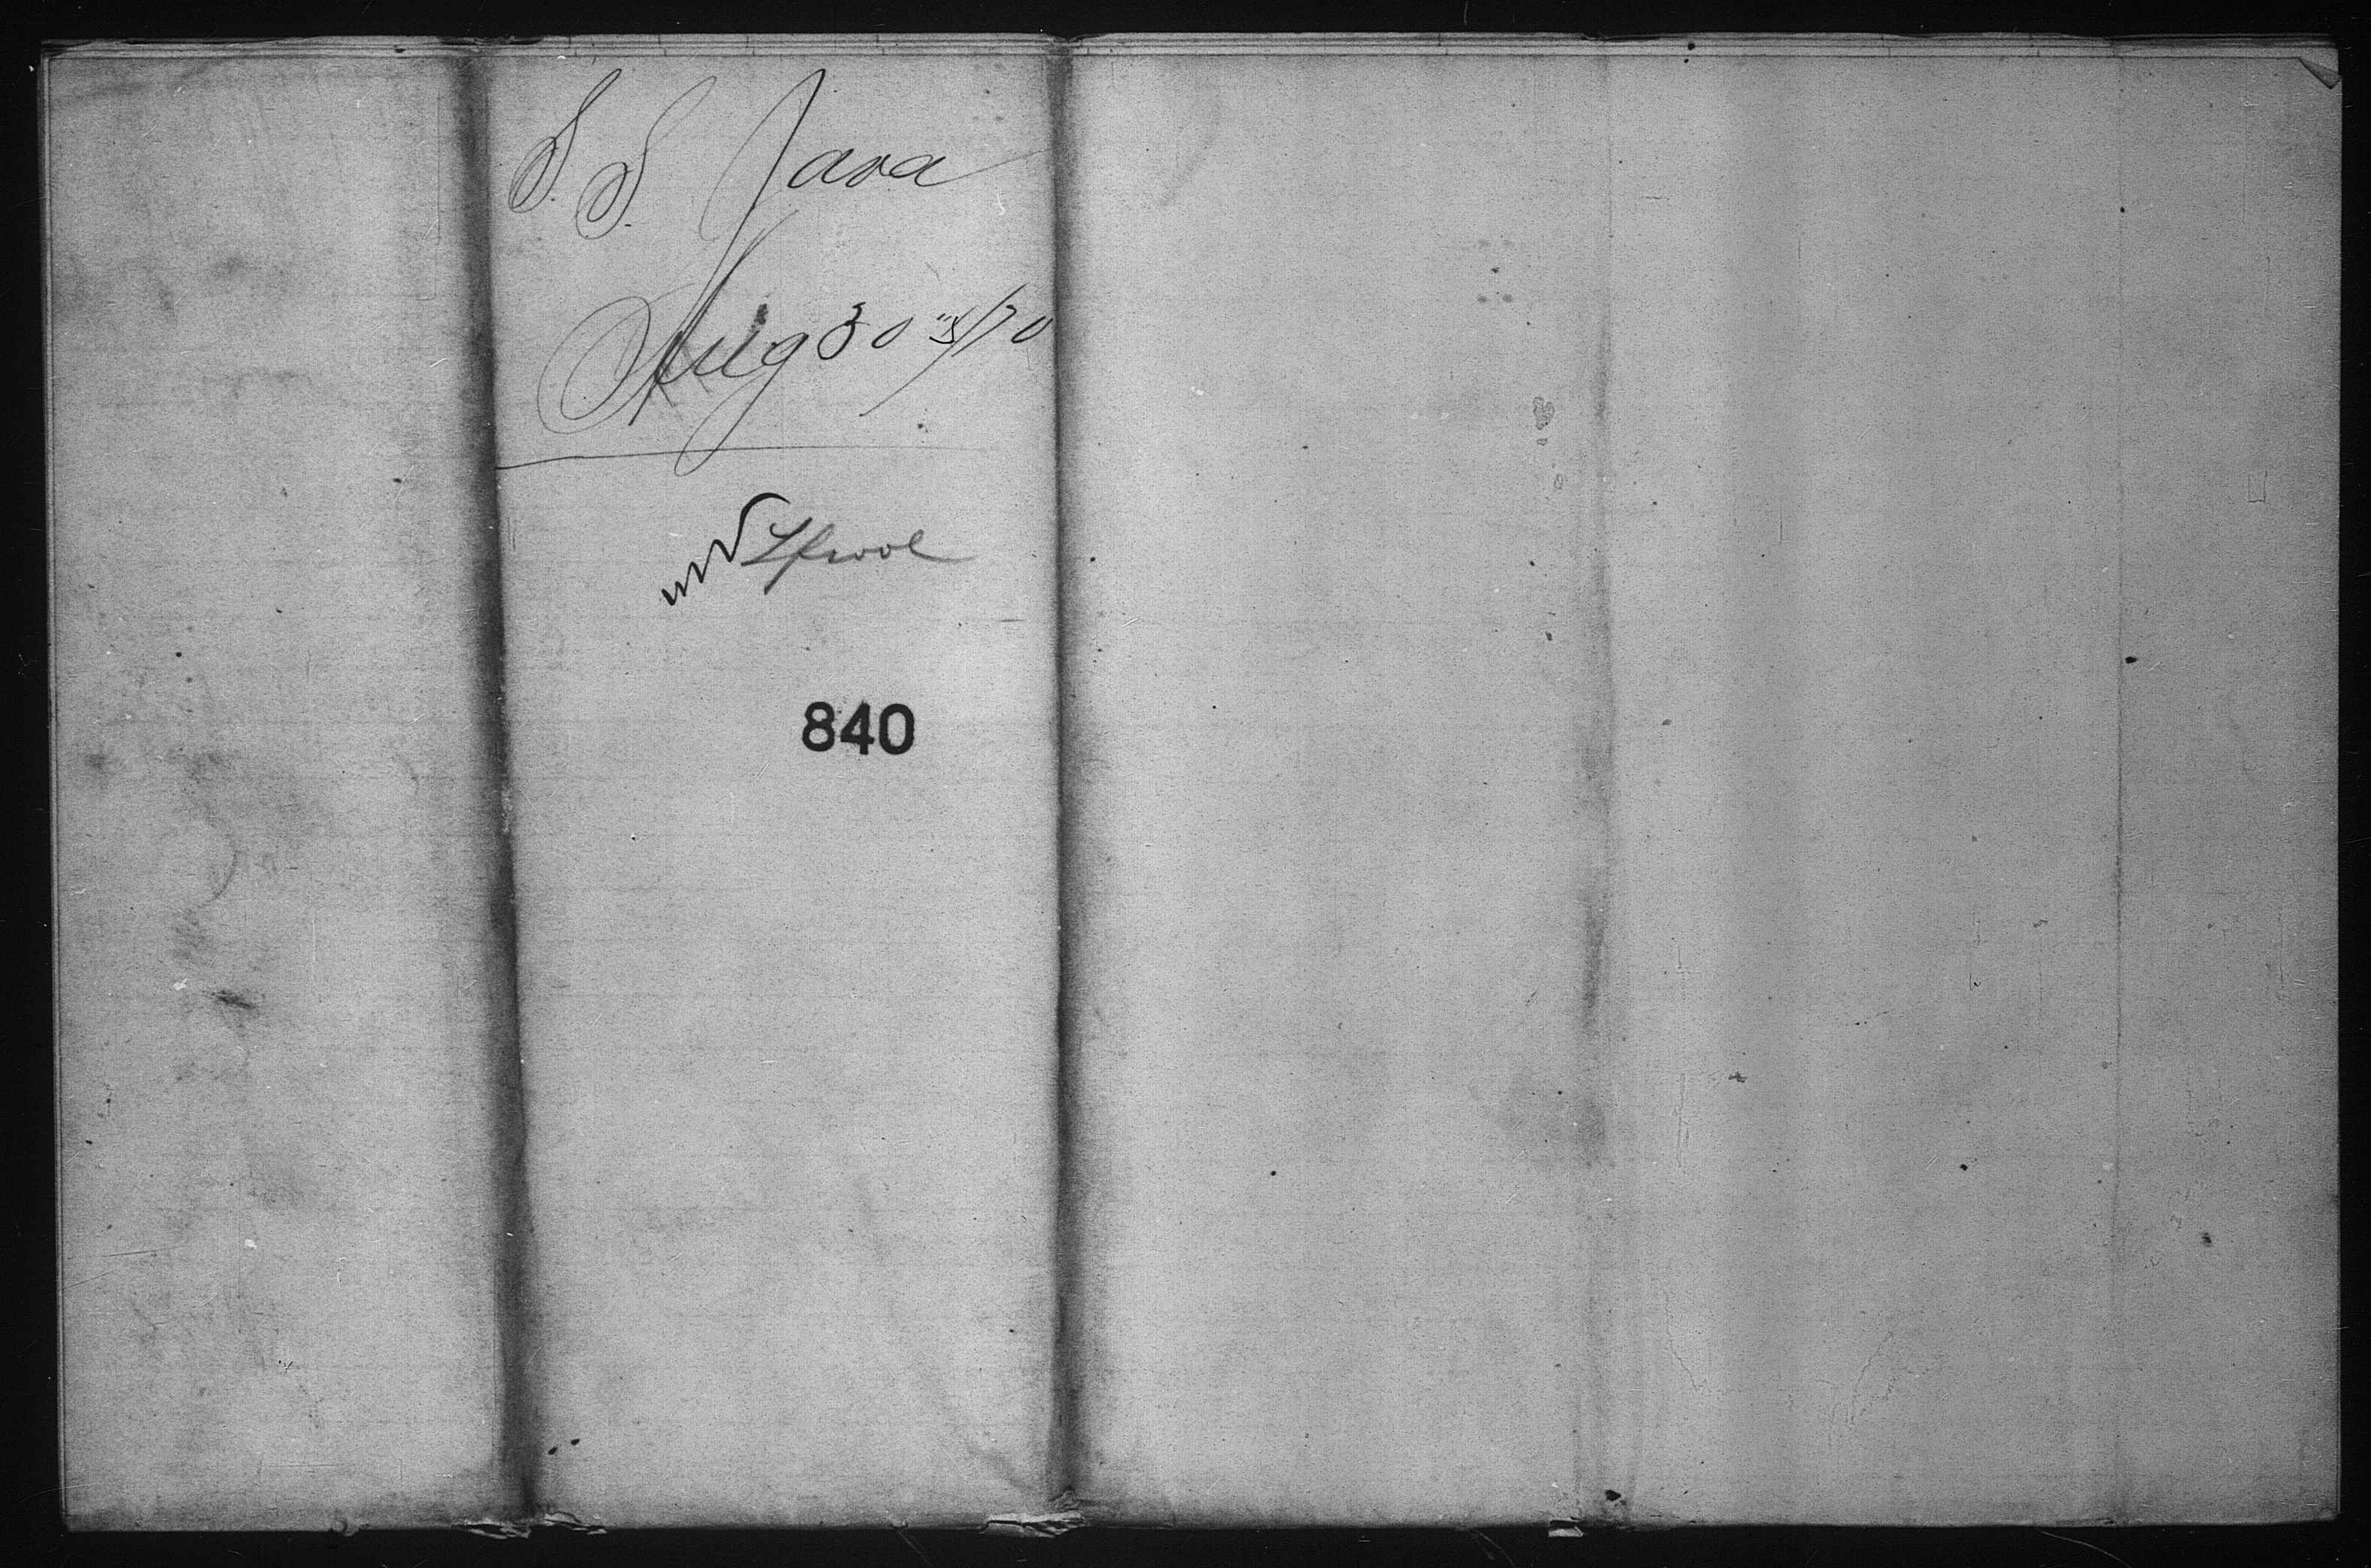 S.S. Java
Aug 30"/70
Lpool
840